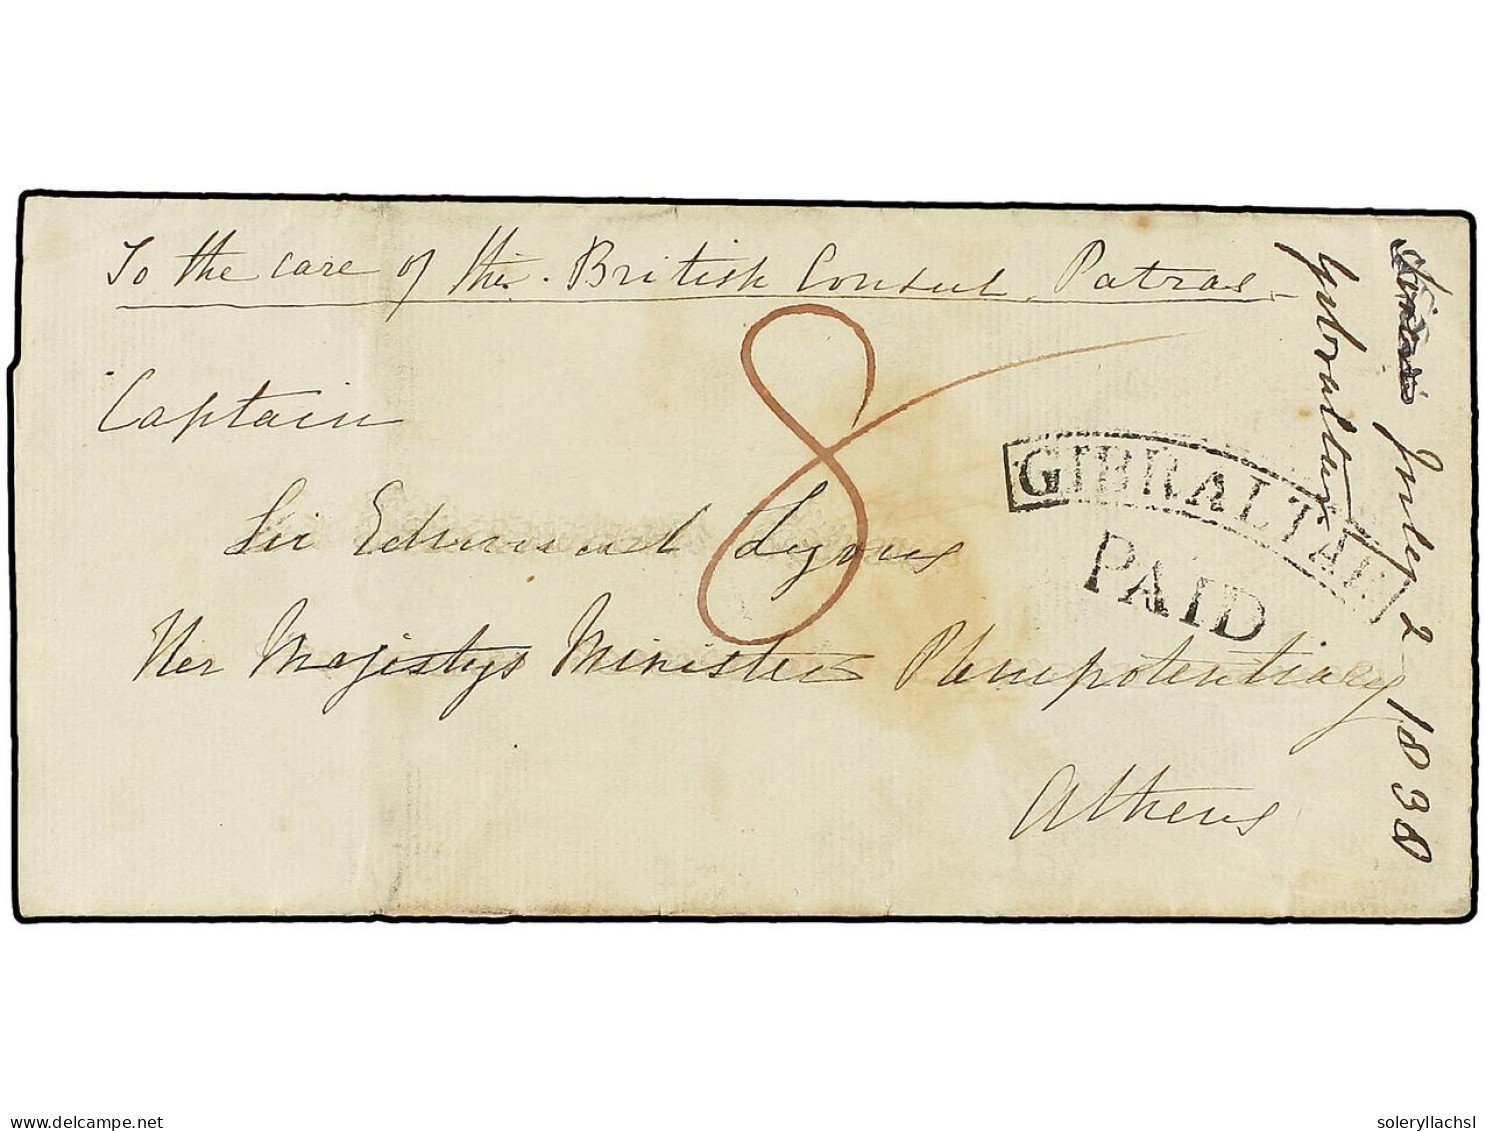 To the care of the British Consul Patras
Captain
Sir Edmund Lyons
Her Majestys Minister Plenipotentiary
Athens
8
GIBRALTAR
PAID
Gibraltar
July 2 1838
delcampe.net
soleryllachsl